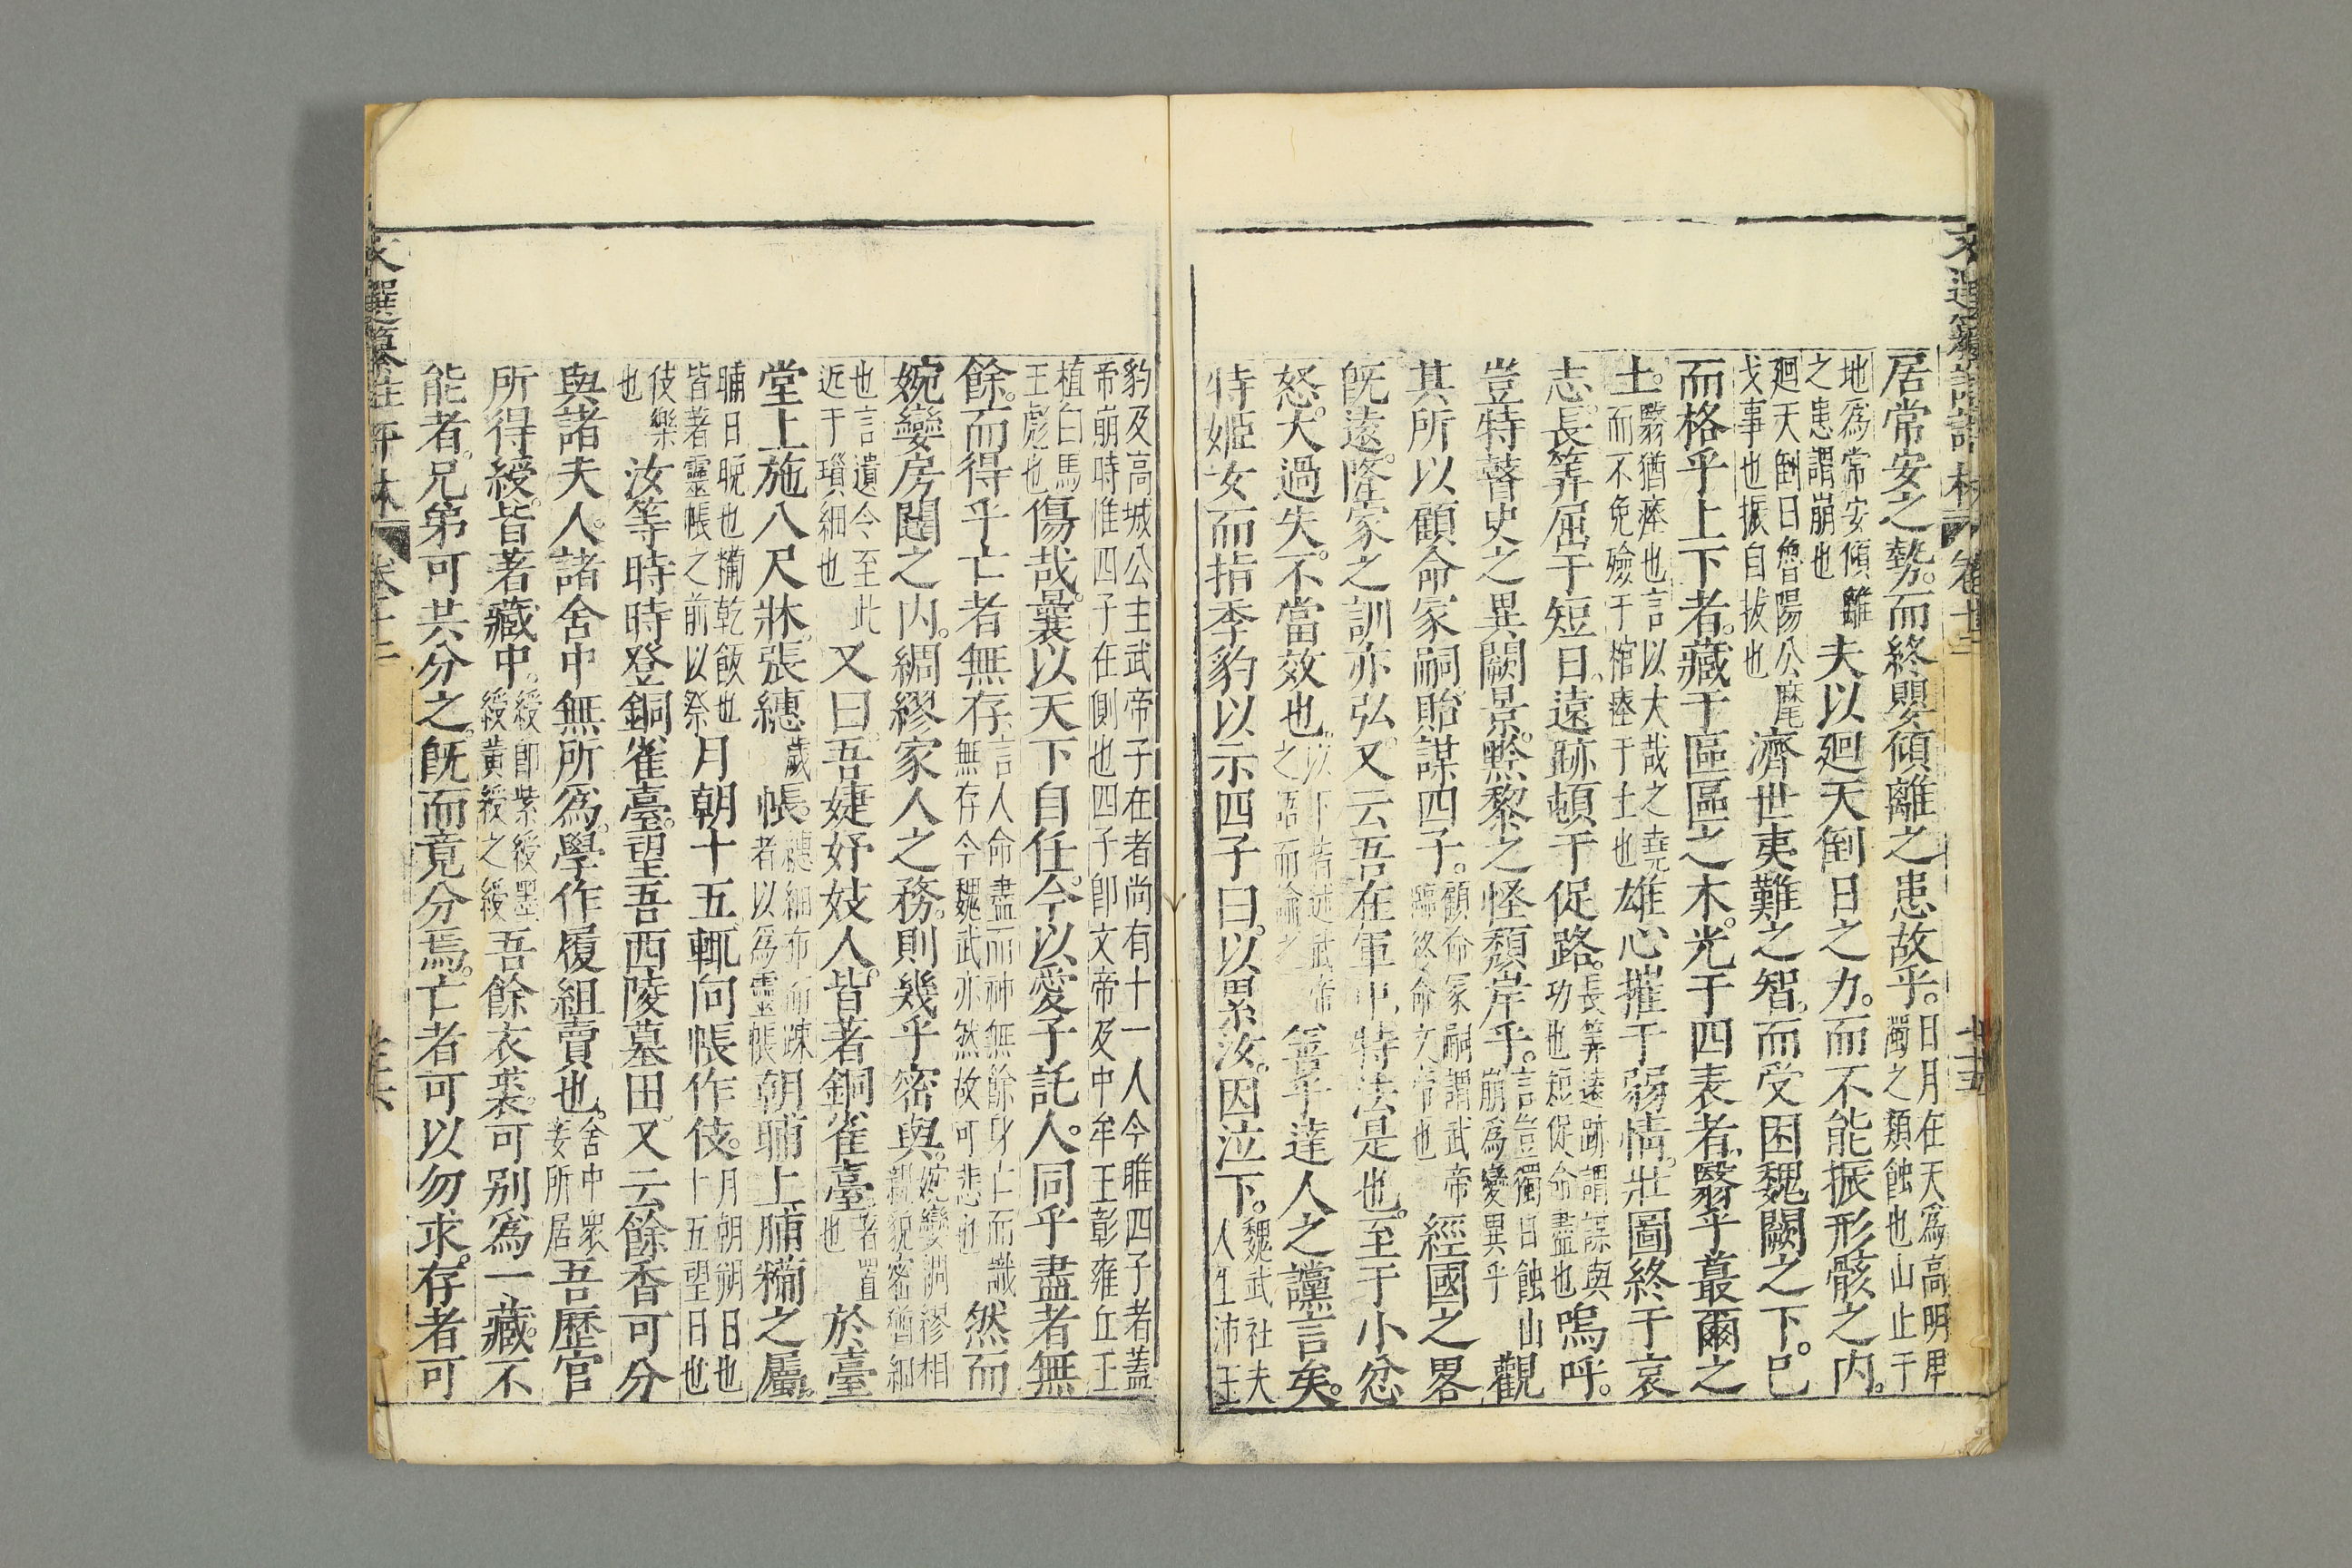 居常安之勢。而終嬰傾離之患故乎。日月在天爲高明畀濁之類蝕也山止于
地爲常安傾離之患謂崩也夫以廻天倒日之力。而不能振形骸之内。
廻天倒日魯陽公麾戈事也振自拔也濟世夷難之智。而受困魏闕之下。已
而格乎上下者。藏于區區之木。光于四表者。翳乎蕞爾之
土。翳猶瘞也言以大哉之堯而不免殮于棺瘞于土也雄心摧于弱情。壯圖終于哀
志。長筭屈于短日。遠跡頓于促路。長筭遠跡謂謀與功也短促命盡也嗚呼。
豈特瞽史之異闕景。黔黎之怪頽岸乎。言豈獨日蝕山崩爲變異乎觀
其所以顧命冢嗣。貽謀四子。顧命冢嗣謂武帝臨終命文帝也經國之畧
旣遠。隆家之訓亦弘。又云吾在軍中。特法是也。至于小忿
怒。大過失。不當效也。以下皆述武帝之語而論之善乎達人之讜言矣。
特姬女而指季豹以示四子曰。以累汝。因泣下。魏武社夫人生沛王
豹及高城公主武帝子在者尚有十一人今雎四子者蓋帝崩時惟四子在側也四子卽文帝及中牟王彰雍丘王
植白馬王彪也傷哉。曩以天下自任。今以愛子託人。同乎盡者無
餘。而得乎亡者無存。言人命盡而神無餘身亡而識無存今魏武亦然故可悲也然而
婉孌房闥之内。綢繆家人之務。則幾乎密與。婉孌綢繆相親貌密猶細
也言遺令至此近于瑣細也又曰。吾婕妤妓人。皆著銅雀臺。著置也於臺
堂上施八尺牀。張繐歲帳。繐細布而踈者以爲靈帳朝晡上脯糒之屬。
晡日晚也糒乾飯也皆著靈帳之前以祭月朝十五。輒向帳作伎。月朝朔日也十五望日也
伎樂也汝等時時登銅雀臺。望吾西陵墓田。又云餘香可分
與諸夫人。諸舍中無所爲。學作履組賣也。舍中衆妾所居吾歷官
所得綬。皆著藏中。綬卽紫綬墨綬黃綬之綬吾餘衣裘。可別爲一藏。不
能者。兄弟可共分之。旣而竟分焉。亡者可以勿求。存者可